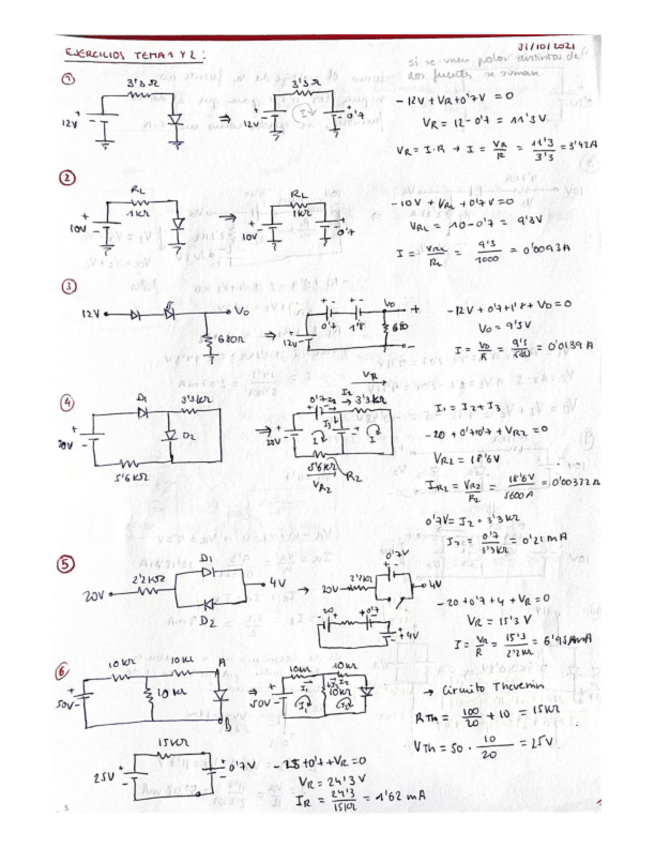 31/10/2021
EJERCICIOS TEMA 1 Y 2:
si se unen polos distintos de
dos fuentes se suman
①
3'3Ω
⇒
3'3Ω
12V
+
-
12V
+
-
I
+
-
0'7
-12V + VR + 0'7V = 0
VR = 12-0'7 = 11'3V
VR = I·R → I = VR/R = 11'3/3'3 = 3'42A
②
RL
1KΩ
⇒
RL
1KΩ
10V
+
-
10V
+
-
+
-
0'7
-10V + VRL + 0'7V = 0
VRL = 10-0'7 = 9'3V
I = VRL/RL = 9'3/1000 = 0'0093A
③
12V
Vo
680Ω
⇒
12V
+ -
0'7
+ -
1'8
Vo
+
680
-
-12V + 0'7 + 1'8 + Vo = 0
Vo = 9'5V
I = Vo/R = 9'5/680 = 0'0139 A
④
D1
3'3KΩ
D2
20V
+
-
5'6KΩ
⇒
VR
0'7
I2
3'3KΩ
20V
I1
I
5'6KΩ
VR2
R2
I1 = I2 + I3
-20 + 0'7 + 0'7 + VR2 = 0
VR2 = 18'6V
IR2 = VR2/R2 = 18'6V/5600 = 0'00332A
0'7V = I2 · 3'3KΩ
I2 = 0'7/3'3KΩ = 0'21mA
⑤
20V
2'2KΩ
D1
D2
4V
→
20V
2'2KΩ
0'7V
4V
20
+0'7-
+4V
-20 + 0'7 + 4 + VR = 0
VR = 15'3V
I = VR/R = 15'3/2'2KΩ = 6'95mA
⑥
10KΩ
10KΩ
A
50V
+
-
10KΩ
B
⇒
10KΩ
10KΩ
50V
+
-
I1
I2
10KΩ
→ Circuito Thevenin
RTh = 100/20 + 10 = 15KΩ
VTh = 50 · 10/20 = 25V
15KΩ
25V
+
-
+
-
0'7V
-25 + 0'7 + VR = 0
VR = 24'3V
IR = 24'3/15KΩ = 1'62 mA